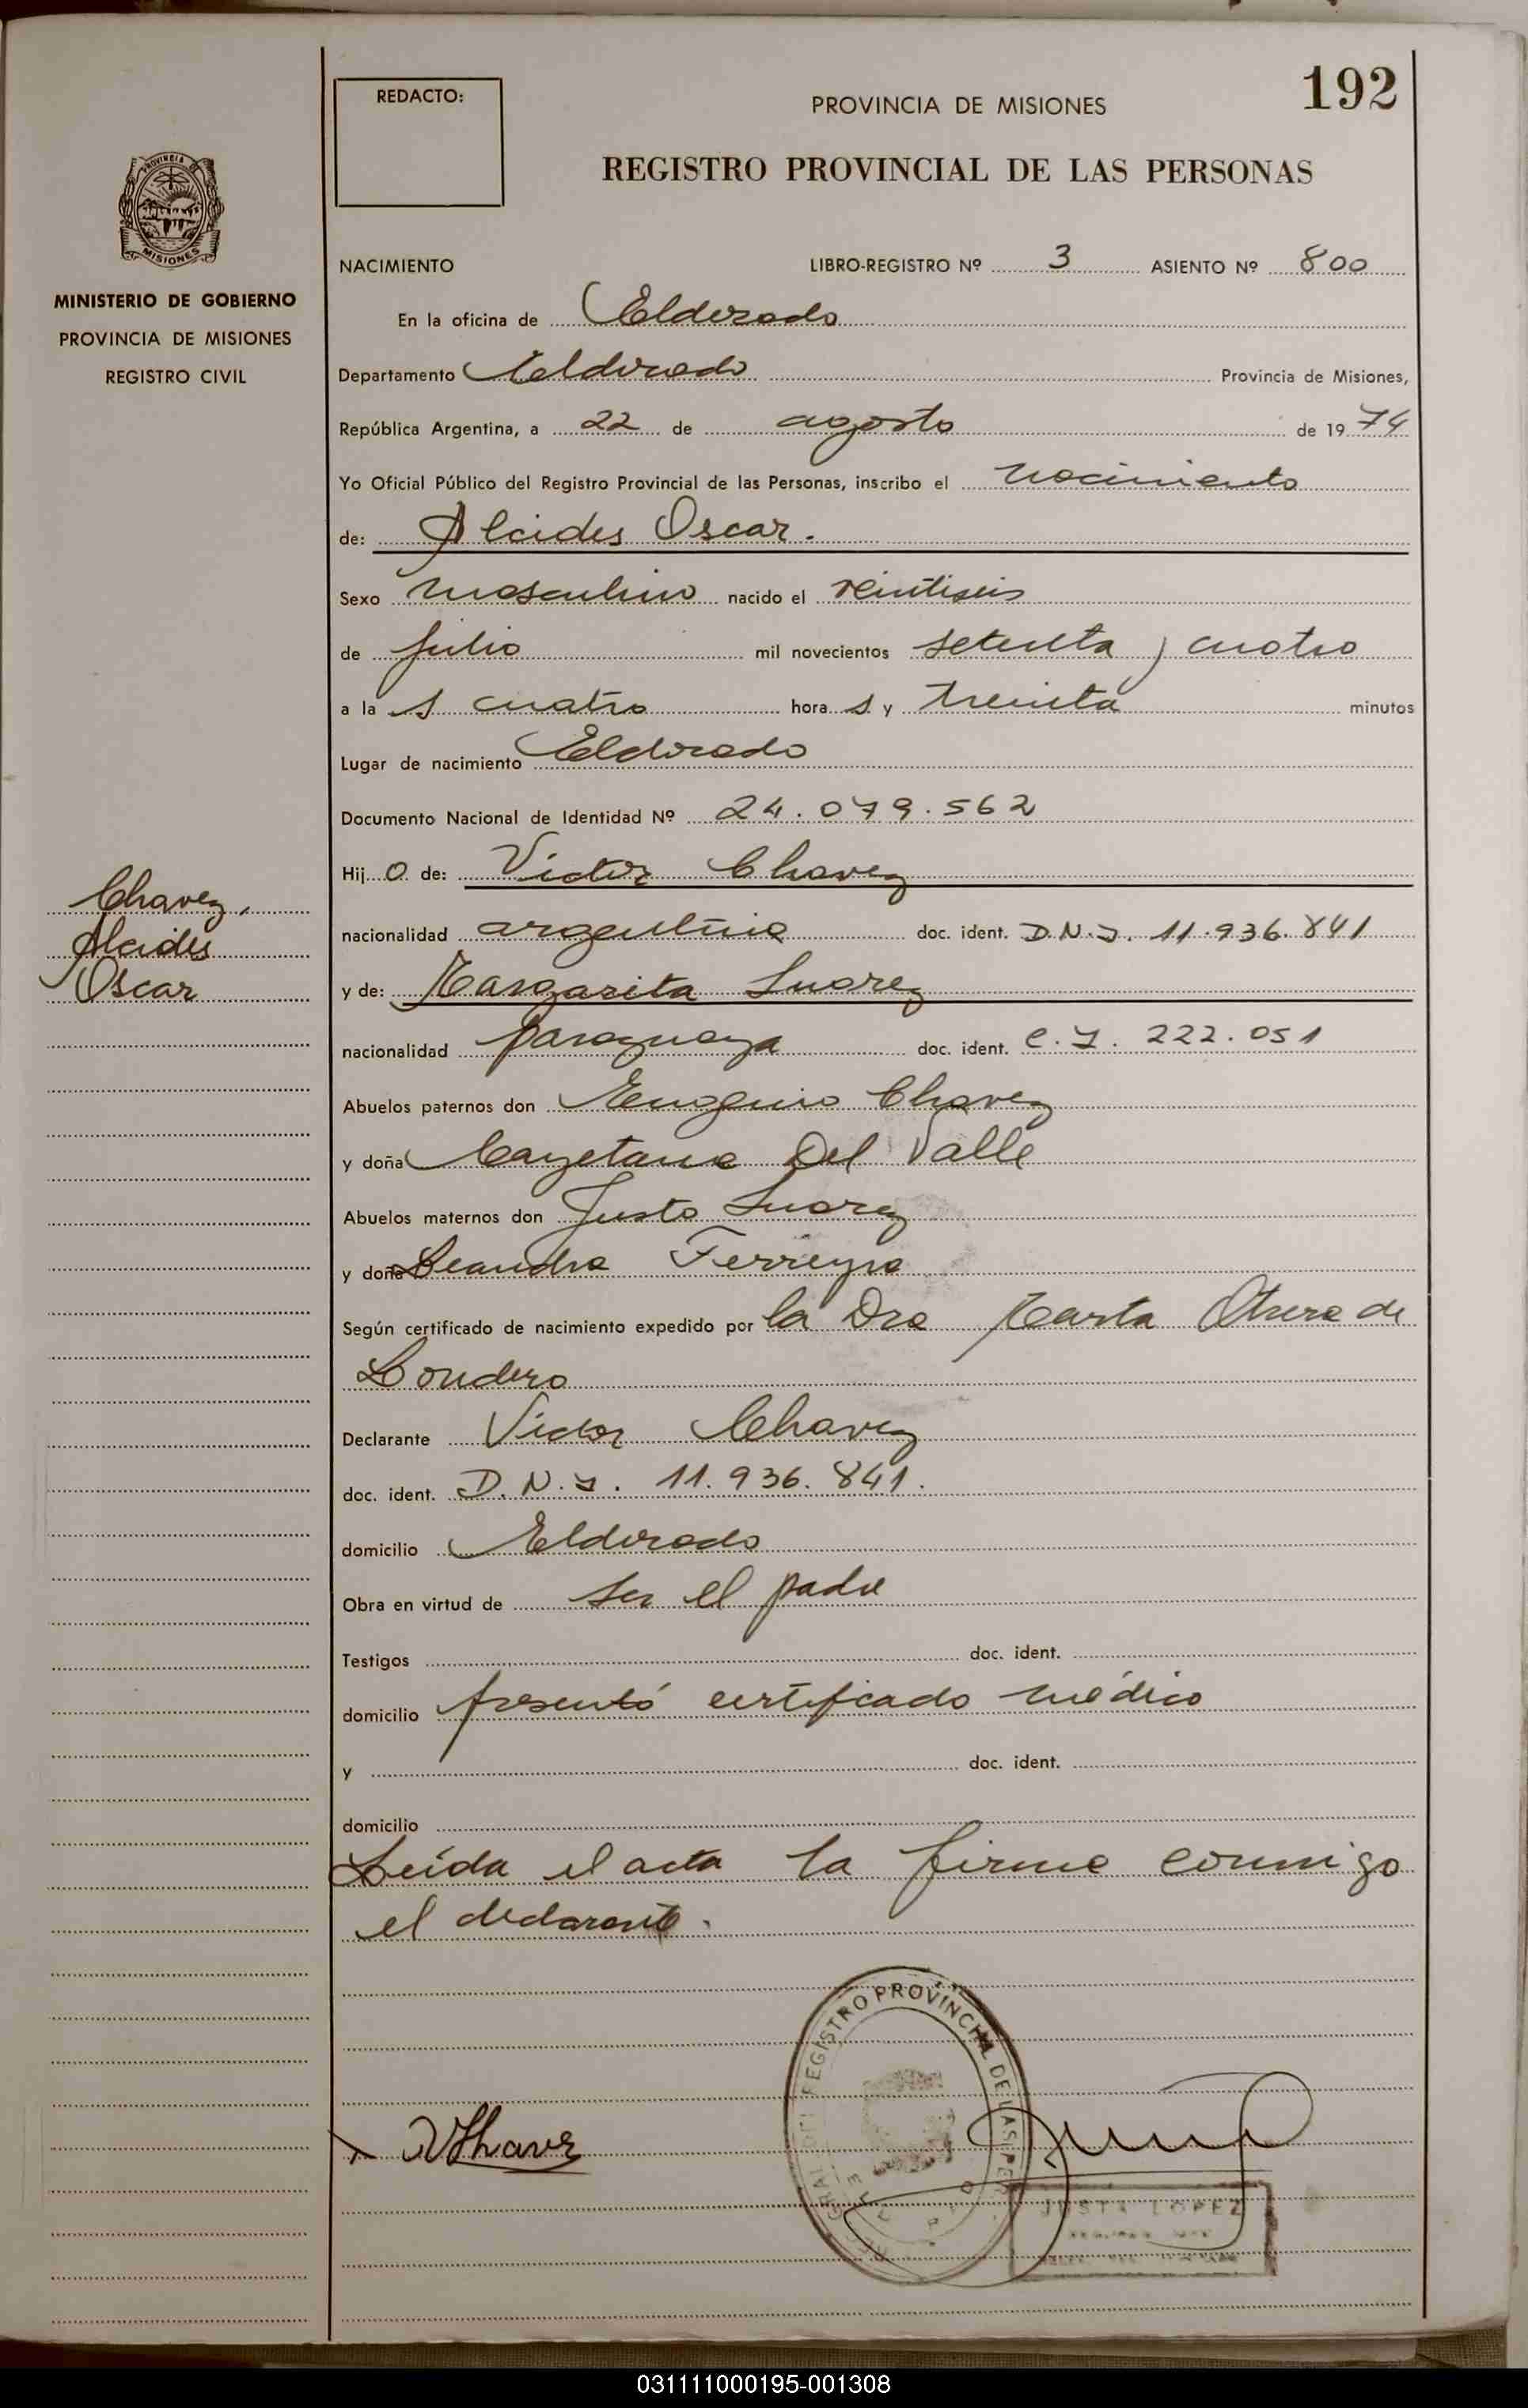 192
REDACTO:
PROVINCIA DE MISIONES
REGISTRO PROVINCIAL DE LAS PERSONAS
MISIONES
MINISTERIO DE GOBIERNO
PROVINCIA DE MISIONES
REGISTRO CIVIL
NACIMIENTO LIBRO-REGISTRO Nº 3 ASIENTO Nº 800
En la oficina de Eldorado
Departamento Eldorado Provincia de Misiones,
República Argentina, a 22 de agosto de 1974
Yo Oficial Público del Registro Provincial de las Personas, inscribo el nacimiento
de: Alcides Oscar.
Sexo masculino nacido el veintiseis
de julio mil novecientos setenta y cuatro
a la s cuatro hora s y treinta minutos
Lugar de nacimiento Eldorado
Documento Nacional de Identidad Nº 24.079.562
Hij o de: Victor Chavez
Chavez,
Alcides
Oscar
nacionalidad argentina doc. ident. D.N.I. 11.936.841
y de: Margarita Suarez
nacionalidad paraguaya doc. ident. C.I. 222.051
Abuelos paternos don Chavez
y doña Cayetana Del Valle
Abuelos maternos don Justo Suarez
y doña Leandra Ferreyra
Según certificado de nacimiento expedido por la Dra Marta de
Londero
Declarante Victor Chavez
doc. ident. D.N.I. 11.936.841.
domicilio Eldorado
Obra en virtud de ser el padre
Testigos doc. ident.
domicilio presentó certificado médico
y doc. ident.
domicilio
Leída el acta la firma conmigo
el declarante.
REGISTRO PROVINCIAL DE LAS PER
x VChavez
JUSTA LOPEZ
031111000195-001308